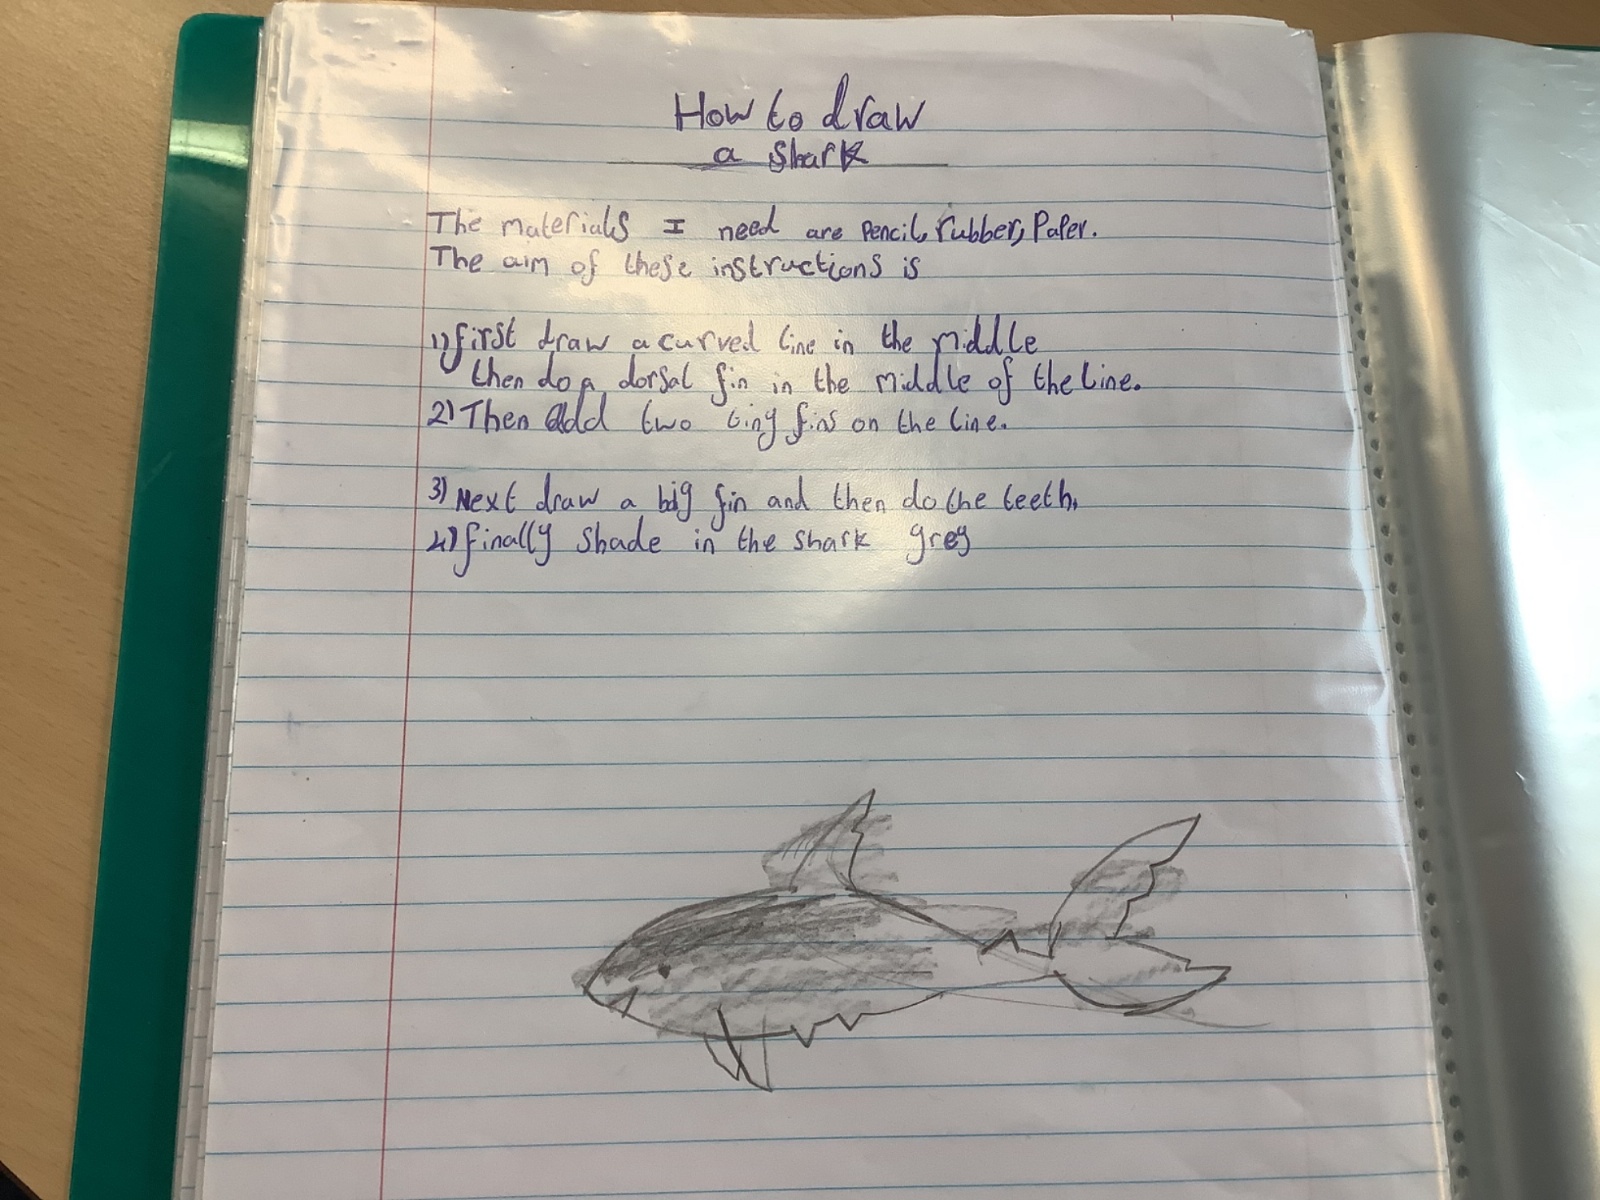 How to draw
a Shark
The materials I need are Pencil, rubber, Paper.
The aim of these instructions is
1) first draw a curved line in the middle
then do a dorsal fin in the middle of the line.
2) Then add two tiny fins on the line.
3) Next draw a big fin and then do the teeth.
4) finally shade in the shark grey